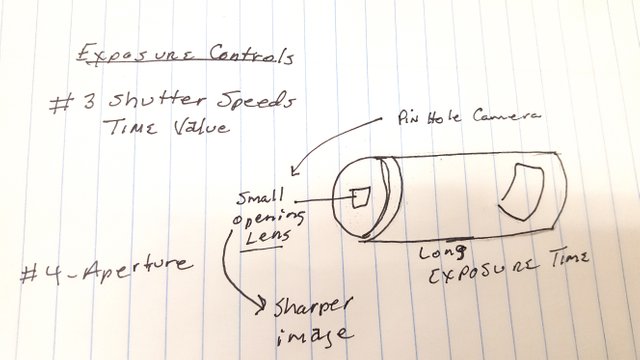 Exposure Controls
#3 Shutter Speeds
Time Value
Pin Hole Camera
Small
opening
Lens
Long
Exposure Time
#4-Aperture
Sharper
image